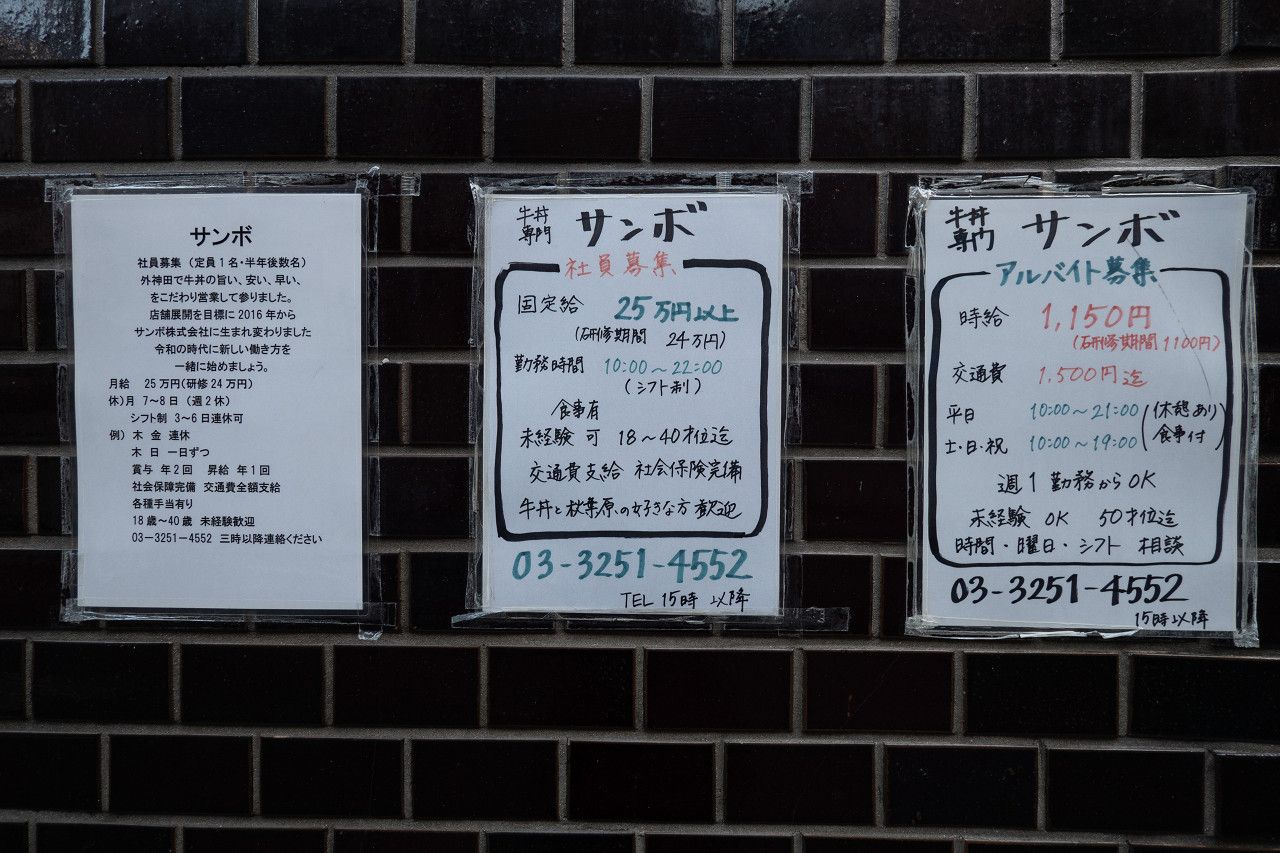 サンボ
社員募集（定員1名・半年後数名）
外神田で牛丼の旨い、安い、早い、
をこだわり営業して参りました。
店舗展開を目標に2016年から
サンボ株式会社に生まれ変わりました
令和の時代に新しい働き方を
一緒に始めましょう。
月給　25万円(研修24万円)
休)月　7～8日（週2休）
シフト制　3～6日連休可
例）木　金　連休
木　日　一日ずつ
賞与　年2回　昇給　年1回
社会保障完備　交通費全額支給
各種手当有り
18歳～40歳　未経験歓迎
03-3251-4552　三時以降連絡ください
牛丼
専門
サンボ
社員募集
固定給　25万円以上
(研修期間　24万円)
勤務時間　10:00～22:00
(シフト制)
食事有
未経験可　18～40才位迄
交通費支給　社会保険完備
牛丼と秋葉原の好きな方歓迎
03-3251-4552
TEL 15時以降
牛丼
専門
サンボ
アルバイト募集
時給　1,150円
(研修期間1100円)
交通費　1,500円迄
平日　10:00～21:00(休憩あり
土・日・祝　10:00～19:00 食事付)
週1勤務からOK
未経験OK　50才位迄
時間・曜日・シフト　相談
03-3251-4552
15時以降